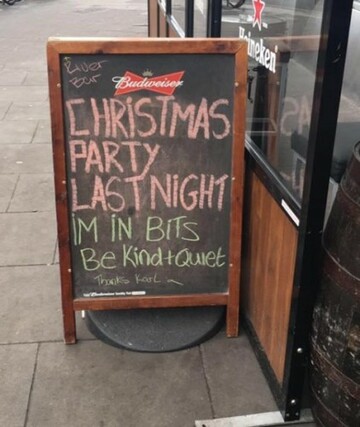 Budweiser
CHRISTMAS
PARTY
LAST NIGHT
IM IN BITS
Be Kind+Quiet
Thanks Karl
Heineken